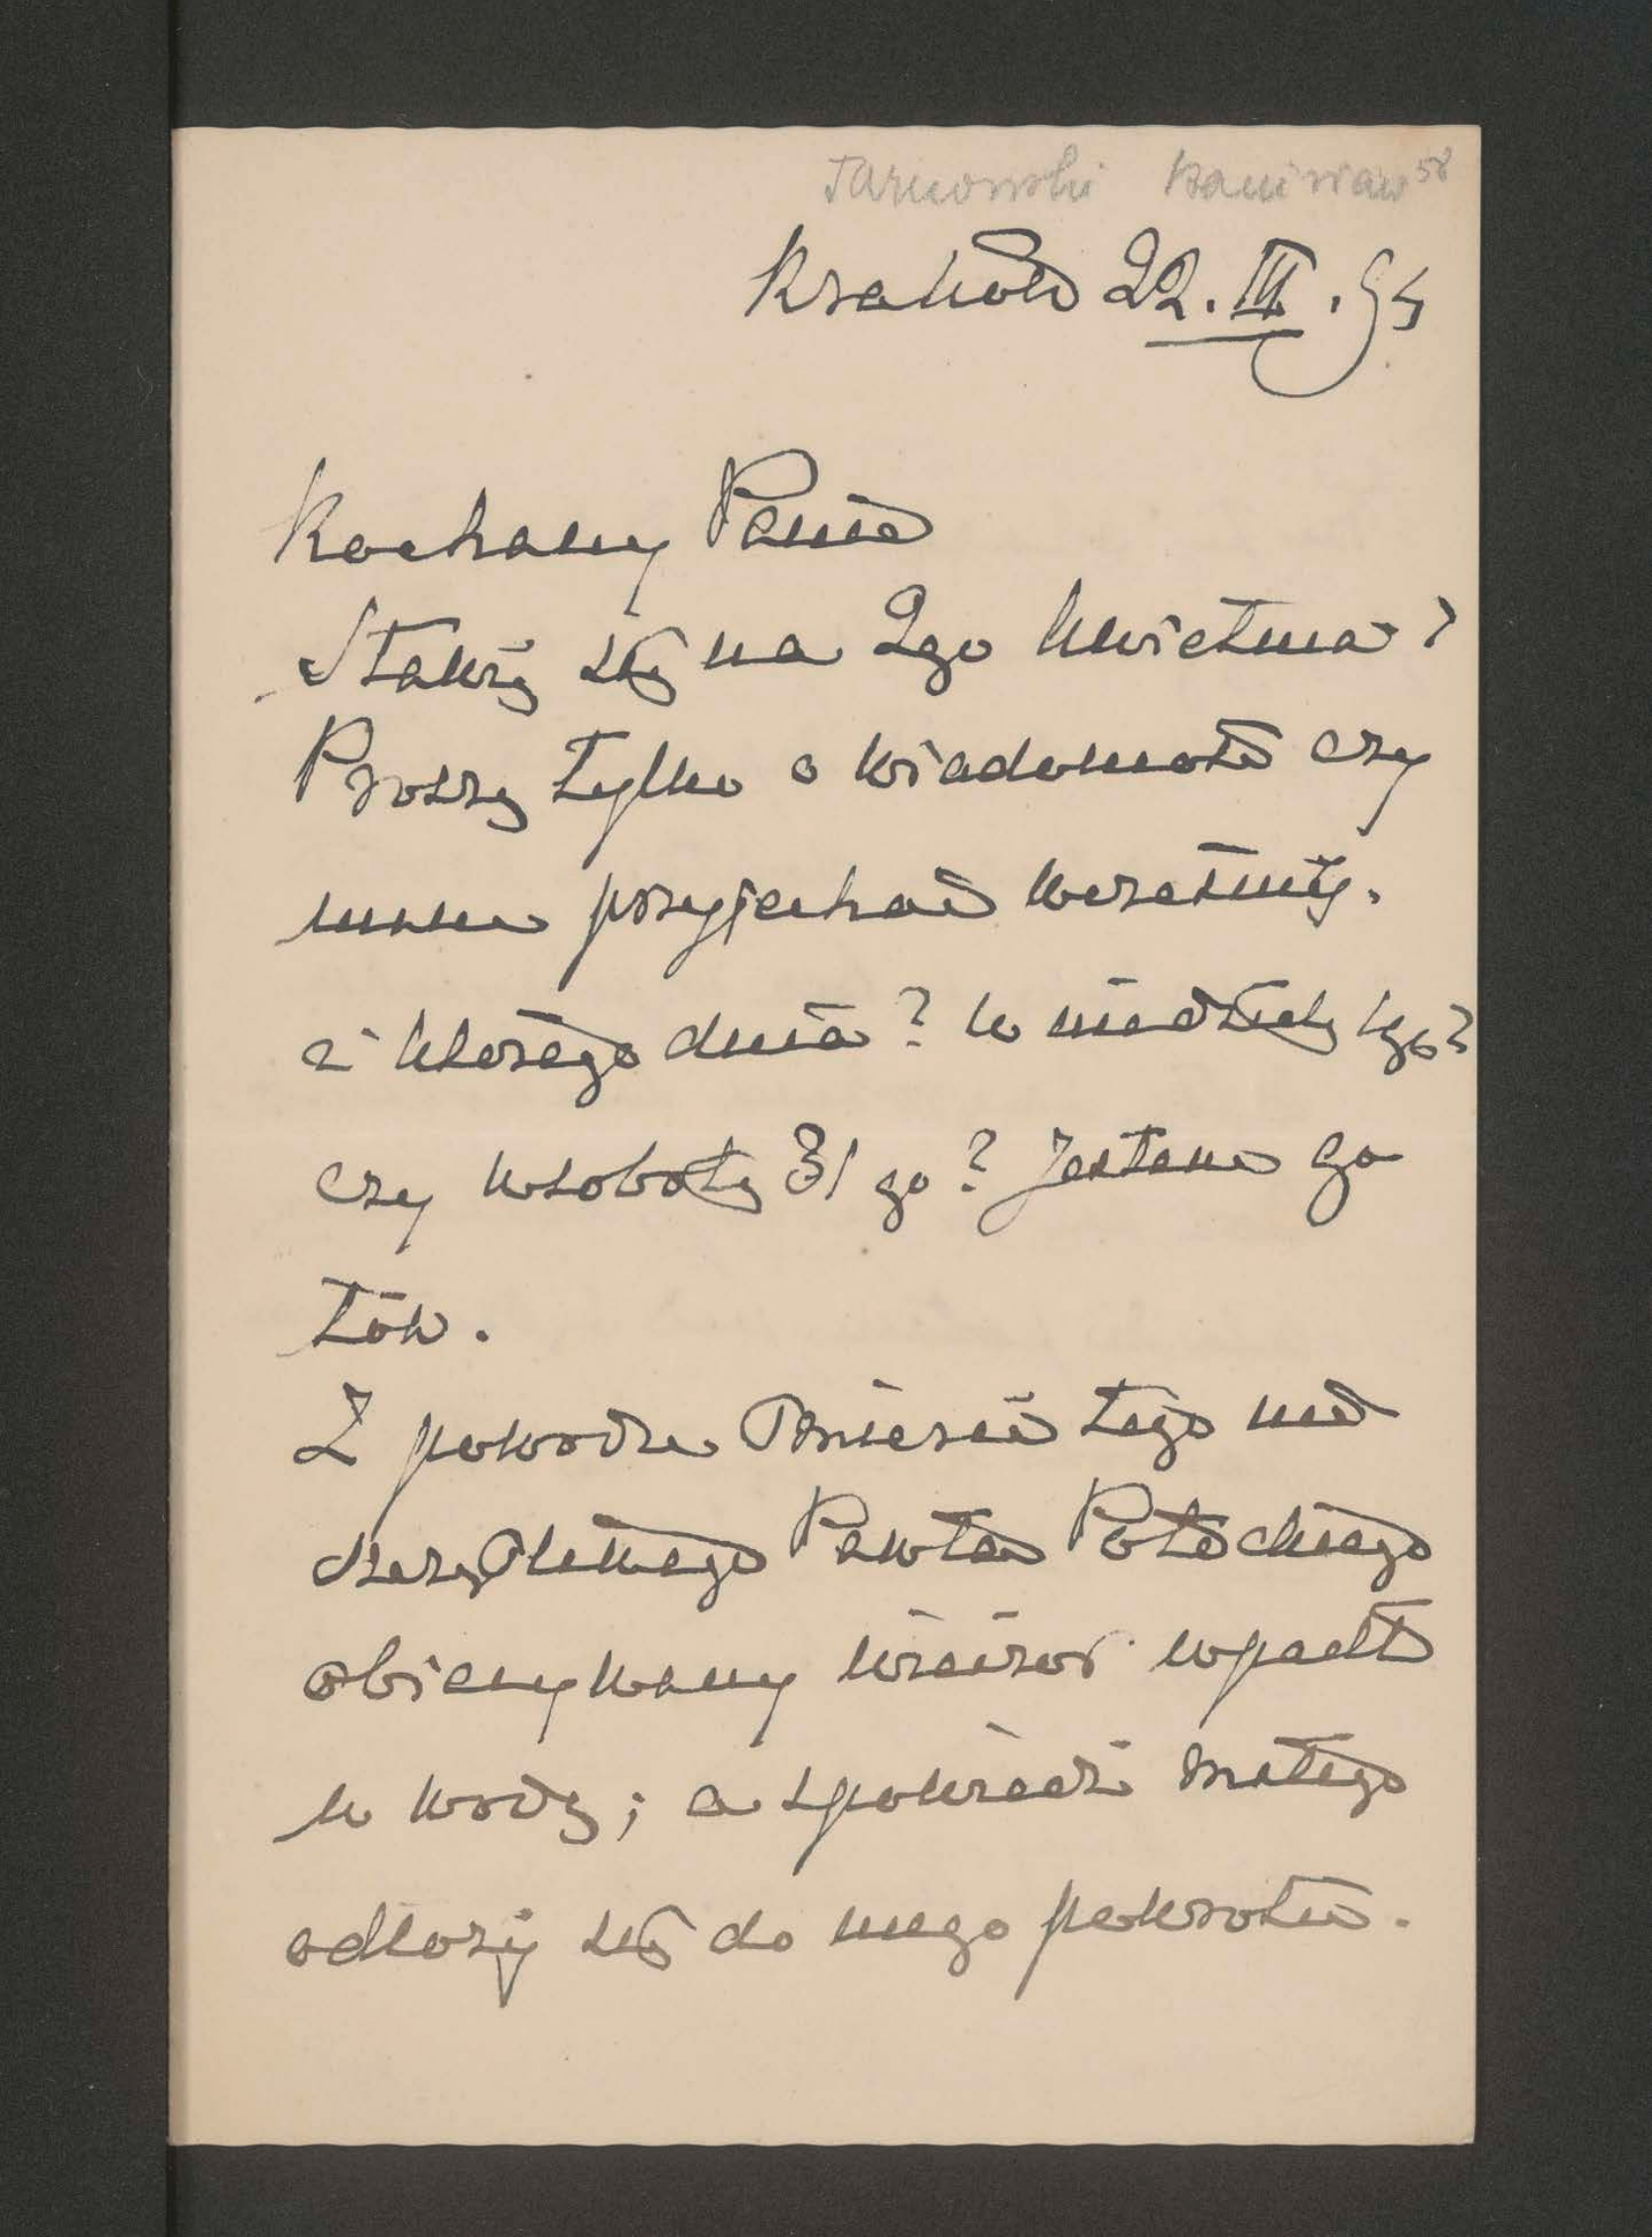 Tarnowski Stanisław 58
Kraków 22. III. 94
Kochany Panie
Stawię się na 2go Kwietnia?
Proszę tylko o wiadomość czy
mam przyjechać wcześniéj.
i którego dnia? w niedzielę 1go?
czy w sobotę 31 go? Jestem go
tów.
Z powodu śmierci tego nie
szczęśliwego Pawła Potockiego
obiecywany wieczór wpadł
w wodę; a spowiedź małego
odłoży się do mego powrotu.